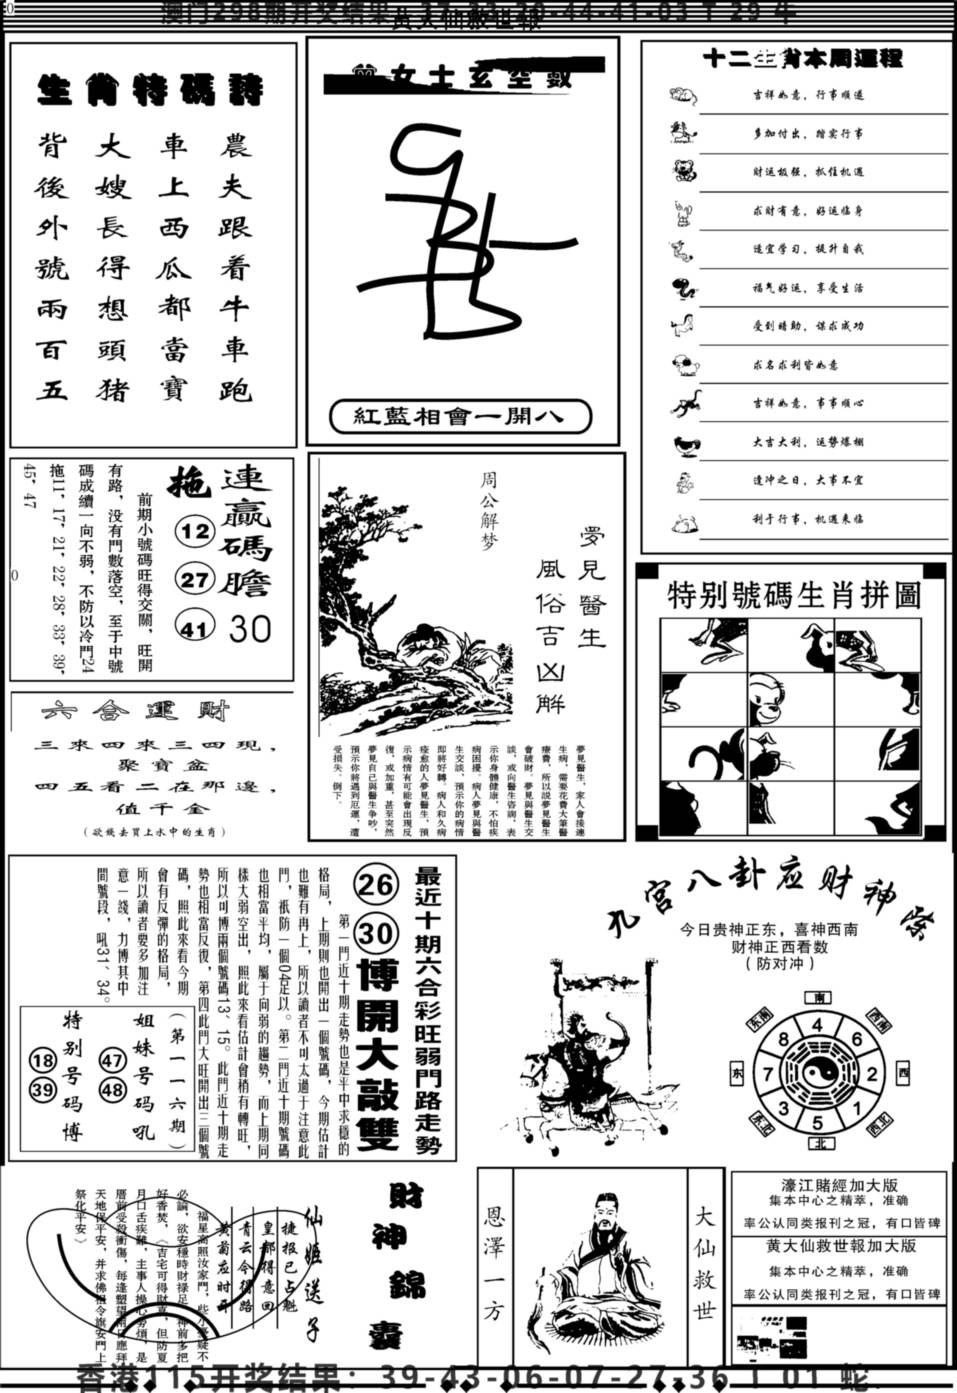 澳门298期开奖结果
黄大仙救世報
生肖特碼詩
農夫跟着牛車跑
車上西瓜都當寶
大嫂長得想頭猪
背後外號兩百五
曾女士玄空數
紅藍相會一開八
十二生肖本周運程
吉祥如意,行事顺遂
多加付出,踏实行事
财运极强,抓住机遇
求财有意,好运临身
适宜学习,提升自我
福气好运,享受生活
受到暗助,谋求成功
求名求利皆如意
吉祥如意,事事顺心
大吉大利,运势爆棚
逢冲之日,大事不宜
利于行事,机遇来临
連贏碼膽 30
拖 12 27 41
前期小號碼旺得交關,旺開
有路,没有門數落空,至于中號
碼成續一向不弱,不防以冷門24
拖11,17,21,22,28,33,39,
45,47
0
周公解梦
夢見醫生
風俗吉凶解
夢見醫生,家人會接連
生病,需要花費大筆醫
療費,所以説夢見醫生
會破財。夢見與醫生交
談,或向醫生咨詢,表
示你身體健康,不怕疾
病困擾。病人夢見與醫
生交談,預示你的病情
即將好轉。病人和久病
痊愈的人夢見醫生,預
示病情有可能會出現反
復,或加重,甚至突然
夢見自己與醫生争吵,
預示你將遇到厄運,遭
受損失,倒下。
特别號碼生肖拼圖
六合運財
三來四來三四現,
聚寶盆
四五看二在那邊,
值千金
(欲幾去買上水中的生肖)
最近十期六合彩旺弱門路走勢
26 30 博開大敲雙
第一門近十期走勢也是平中求穩的
格局,上期則也開出一個號碼,今期估計
也難有再上,所以讀者不可太過于注意此
門,衹防一個04足以。第二門近十期號碼
也相當平均,屬于向弱的趨勢,而上期同
樣大弱空出,照此來看估計會稍有轉旺,
所以可博兩個號碼13、15。此門近十期走
勢也相當反復,第四此門大旺開出三個號
碼,照此來看今期
會有反彈的格局,
所以讀者要多加注
意一綫,力博其中
間號段,吼31、34。
(第一一六期)
姐妹号码吼
47 48
特别号码博
18 39
九宫八卦应财神
今日贵神正东,喜神西南
财神正西看数
(防对冲)
南 西南 西 西北 北 东北 东 东南
4 6 2 1 5 3 7 8
財神錦囊
仙姬送子
捷报已占魁
皇都得意回
青云今得路
黄菊应时开
福星高照汝家門,些小
必論,欲安穩時財禄足,神前多把
好香焚,〈吉宅可得財喜,但防夏
月口舌疾難,主事人操心劳煩,是
天地保平安,并求佛祖令旗安門上
祭化平安〉
恩澤一方
大仙救世
濠江賭經加大版
集本中心之精萃,准确
率公认同类报刊之冠,有口皆碑
黄大仙救世報加大版
集本中心之精萃,准确
率公认同类报刊之冠,有口皆碑
香港115开奖结果:39-43-06-07-27-36 T 01 蛇